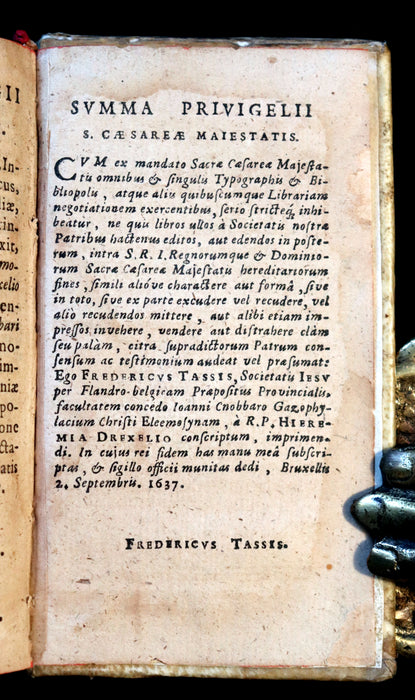 SVMMA PRIVIGELII
S. CÆSAREÆ MAIESTATIS.
CVM ex mandato Sacræ Cæsareæ Majesta-
tis omnibus & singulis Typographis & Bi-
bliopolis, atque aliis quibuscumque Librariam
negotiationem exercentibus, serio stricteq́, inhi-
beatur, ne quis libros ullos à Societatis nostræ
Patribus hactenus editos, aut edendos in poste-
rum, intra S. R. I. Regnorumque & Dominio-
rum Sacræ Cæsareæ Majestatis hereditariorum
fines, simili alióve charactere aut formâ, sive
in toto, sive ex parte excudere vel recudere, vel
alio recudendos mittere, aut alibi etiam im-
pressos invehere, vendere aut distrahere clàm
seu palàm, citra supradictorum Patrum con-
sensum ac testimonium audeat vel præsumat:
Ego FREDERICVS TASSIS, Societatis IESV
per Flandro-belgicam Præpositus Provincialis,
facultatem concedo Ioanni Cnobbaro Gazophy-
lacium Christi Eleemosynam, à R. P. HIERE-
MIA DREXELIO conscriptum, imprimen-
di. In cujus rei fidem has manu meâ subscri-
ptas, & sigillo officii munitas dedi, Bruxellis
2. Septembris. 1637.
FREDERICVS TASSIS.